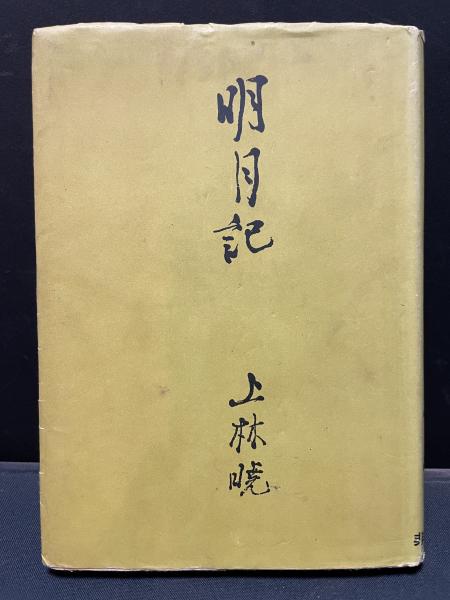 明月記
上林暁